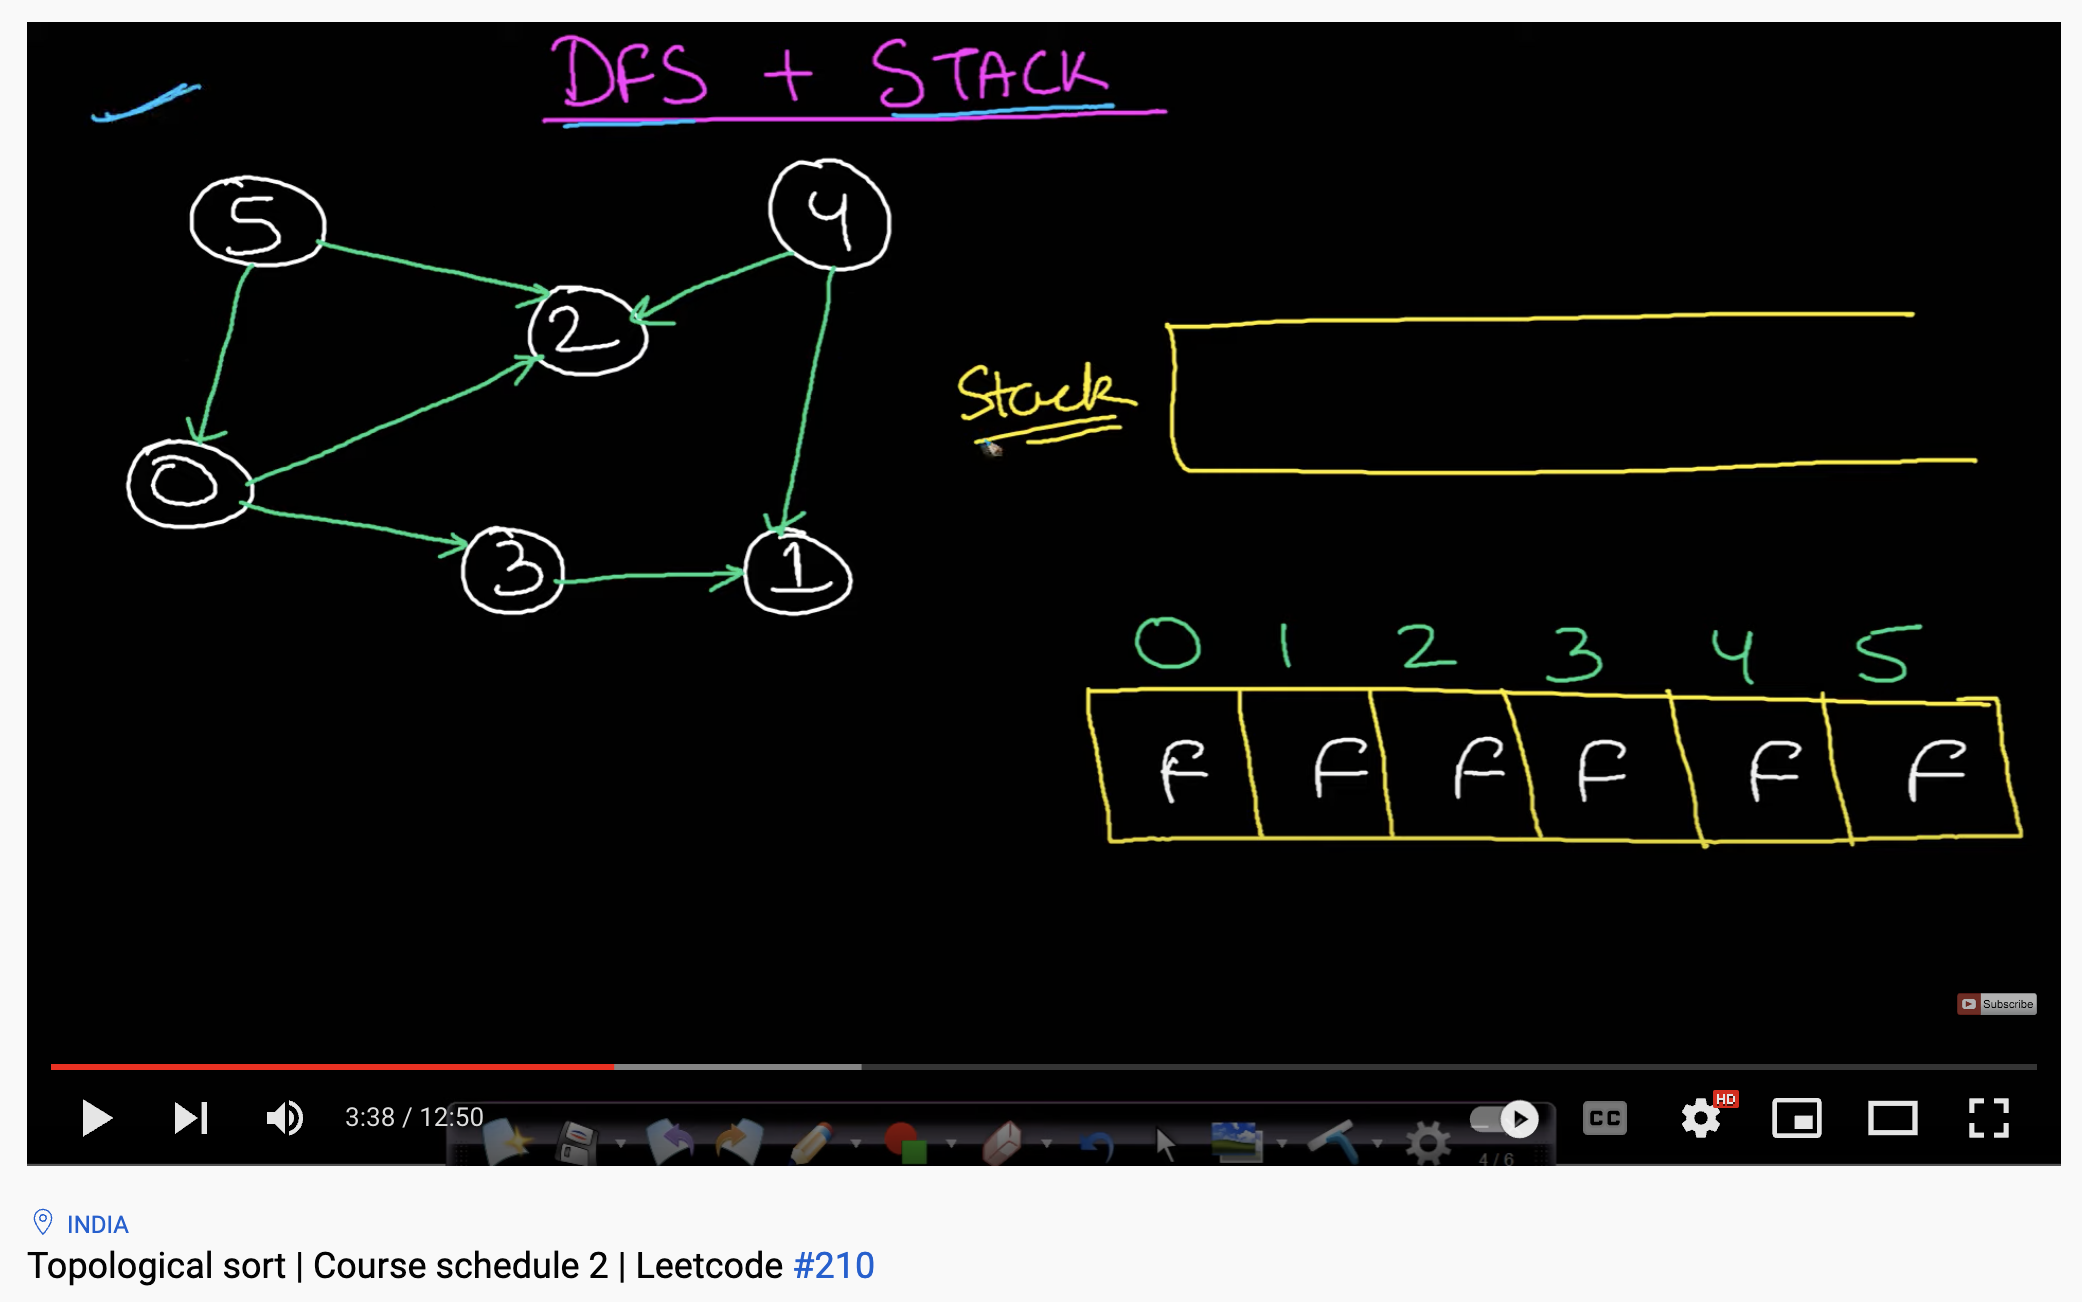 DFS + STACK
5
4
2
Stack
0
3
1
0 1 2 3 4 5
F F F F F F
Subscribe
3:38 / 12:50
CC
HD
4 / 6
INDIA
Topological sort | Course schedule 2 | Leetcode #210